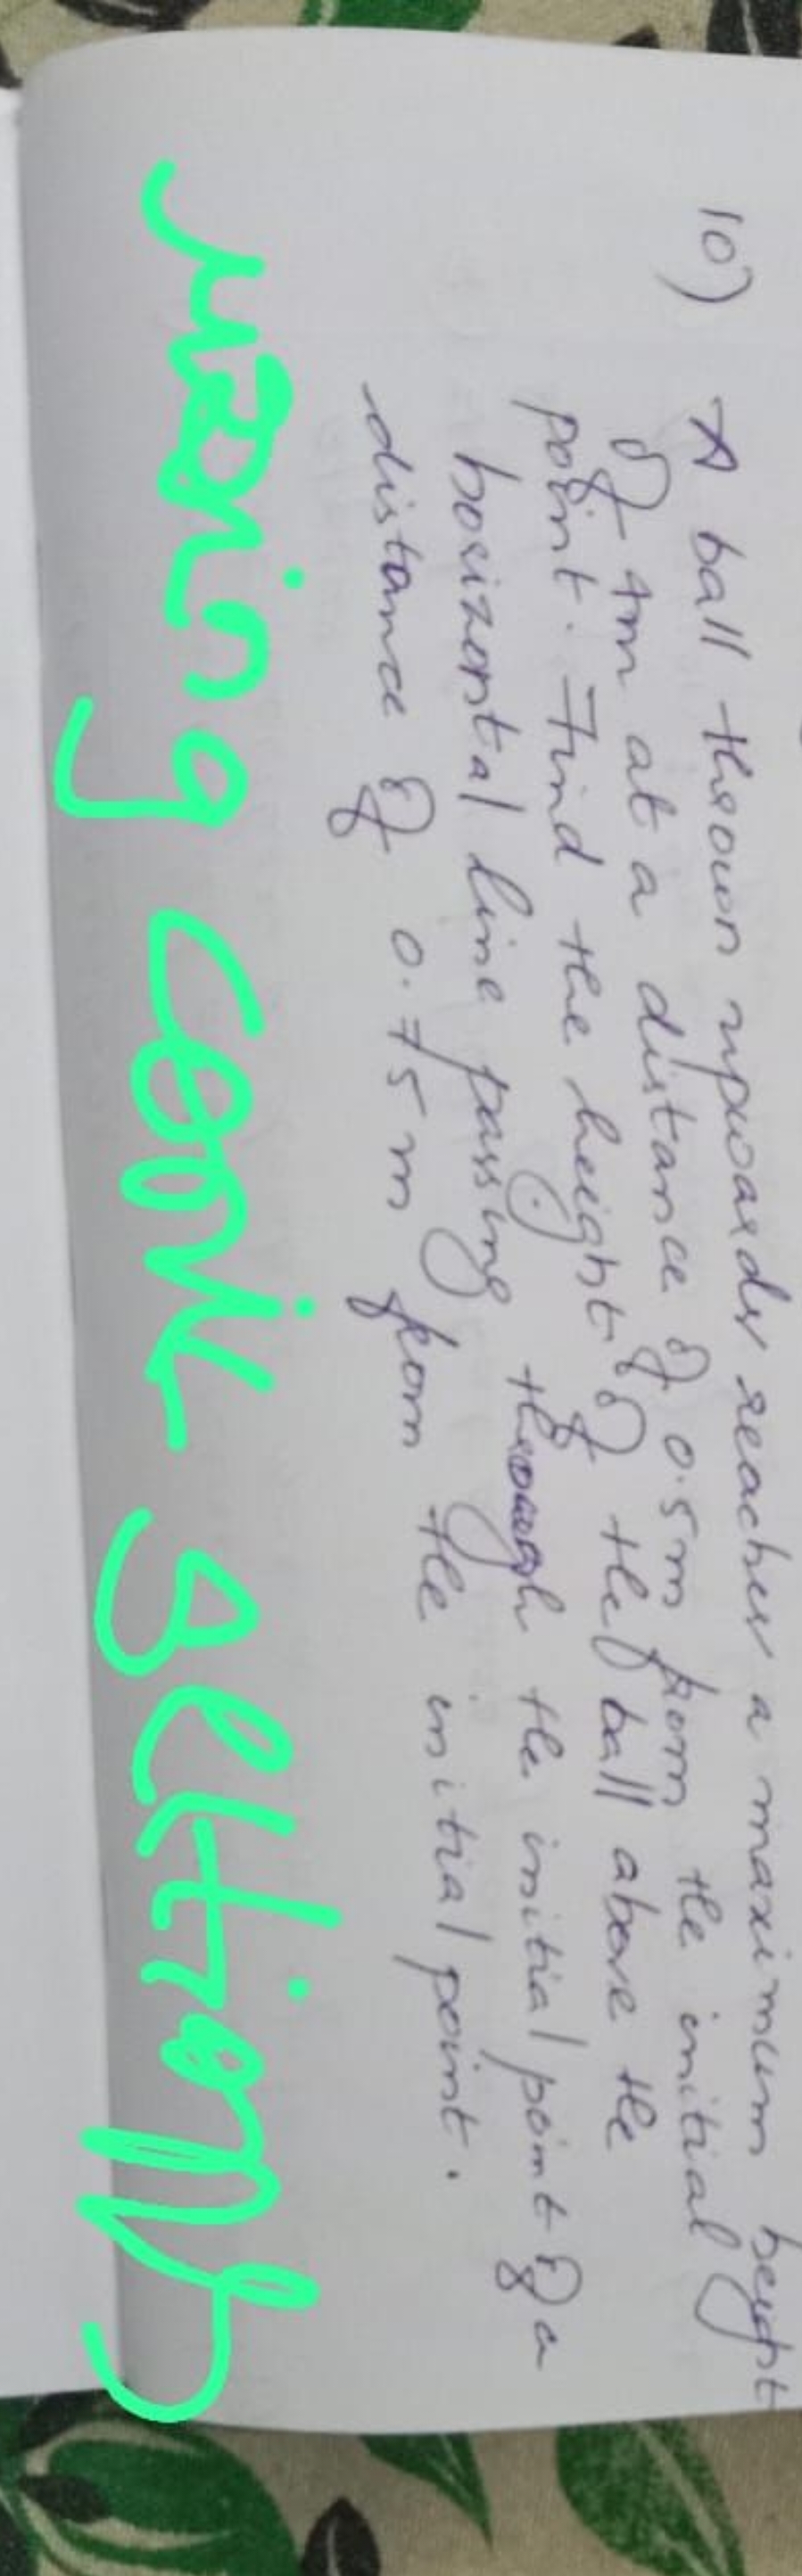 10) A ball thrown upwards reaches a maximum height
of 4m at a distance of 0.5m from the initial
point. Find the height of the ball above the
horizontal line passing through the initial point of a
distance of 0.75m from the initial point.
using conic sections